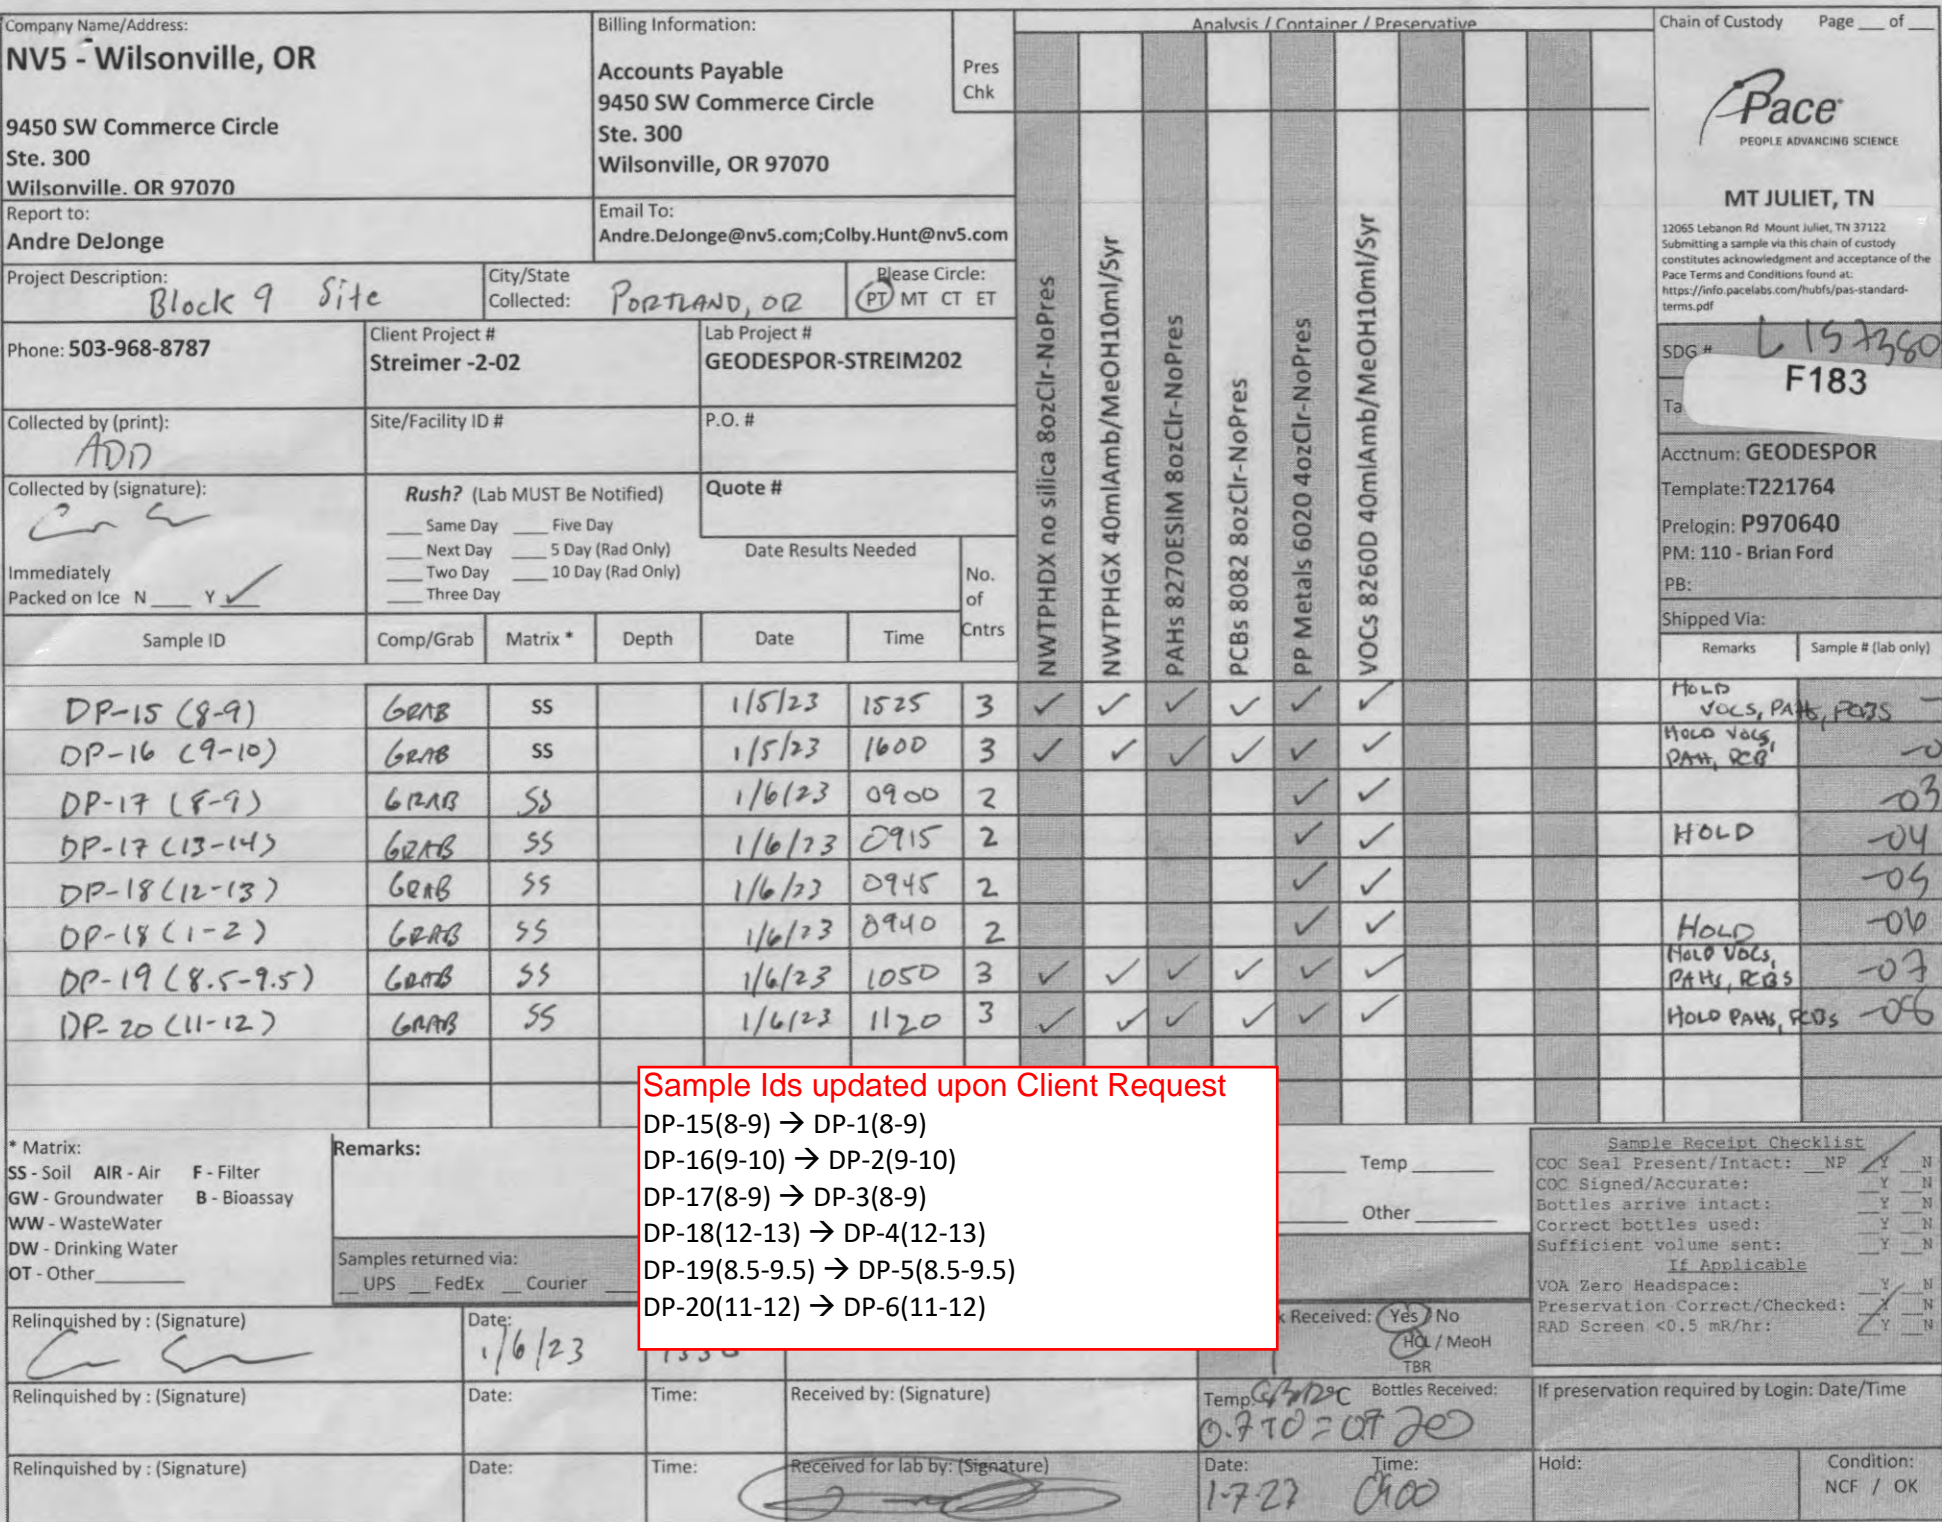 Company Name/Address:
NV5 - Wilsonville, OR
9450 SW Commerce Circle
Ste. 300
Wilsonville, OR 97070
Billing Information:
Accounts Payable
9450 SW Commerce Circle
Ste. 300
Wilsonville, OR 97070
Pres
Chk
Analysis / Container / Preservative
Chain of Custody Page ___ of ___
Pace
PEOPLE ADVANCING SCIENCE
MT JULIET, TN
12065 Lebanon Rd Mount Juliet, TN 37122
Submitting a sample via this chain of custody
constitutes acknowledgment and acceptance of the
Pace Terms and Conditions found at:
https://info.pacelabs.com/hubfs/pas-standard-
terms.pdf
Report to:
Andre DeJonge
Email To:
Andre.DeJonge@nv5.com;Colby.Hunt@nv5.com
Project Description:
Block 9 Site
City/State
Collected: PORTLAND, OR
Please Circle:
PT MT CT ET
Phone: 503-968-8787
Client Project #
Streimer -2-02
Lab Project #
GEODESPOR-STREIM202
SDG # L157380
F183
Ta
Collected by (print):
ADD
Site/Facility ID #
P.O. #
Acctnum: GEODESPOR
Template:T221764
Prelogin: P970640
PM: 110 - Brian Ford
PB:
Shipped Via:
Remarks Sample # (lab only)
Collected by (signature):
Rush? (Lab MUST Be Notified)
___ Same Day ___ Five Day
___ Next Day ___ 5 Day (Rad Only)
___ Two Day ___ 10 Day (Rad Only)
___ Three Day
Quote #
Date Results Needed
Immediately
Packed on Ice N ___ Y ✓
No.
of
Cntrs
NWTPHDX no silica 8ozClr-NoPres
NWTPHGX 40mlAmb/MeOH10ml/Syr
PAHs 8270ESIM 8ozClr-NoPres
PCBs 8082 8ozClr-NoPres
PP Metals 6020 4ozClr-NoPres
VOCs 8260D 40mlAmb/MeOH10ml/Syr
Sample ID Comp/Grab Matrix * Depth Date Time
DP-15 (8-9) GRAB SS 1/5/23 1525 3 ✓ ✓ ✓ ✓ ✓ ✓ HOLD VOCS, PAHs, PCBS
DP-16 (9-10) GRAB SS 1/5/23 1600 3 ✓ ✓ ✓ ✓ ✓ ✓ HOLD VOCS, PAH, PCB
DP-17 (8-9) GRAB SS 1/6/23 0900 2 ✓ ✓ -03
DP-17 (13-14) GRAB SS 1/6/23 0915 2 ✓ ✓ HOLD -04
DP-18 (12-13) GRAB SS 1/6/23 0945 2 ✓ ✓ -05
DP-18 (1-2) GRAB SS 1/6/23 0940 2 ✓ ✓ HOLD -06
DP-19 (8.5-9.5) GRAB SS 1/6/23 1050 3 ✓ ✓ ✓ ✓ ✓ ✓ HOLD VOCS, PAHs, PCBS -07
DP-20 (11-12) GRAB SS 1/6/23 1120 3 ✓ ✓ ✓ ✓ ✓ ✓ HOLD PAHs, PCBs -08
Sample Ids updated upon Client Request
DP-15(8-9) → DP-1(8-9)
DP-16(9-10) → DP-2(9-10)
DP-17(8-9) → DP-3(8-9)
DP-18(12-13) → DP-4(12-13)
DP-19(8.5-9.5) → DP-5(8.5-9.5)
DP-20(11-12) → DP-6(11-12)
* Matrix:
SS - Soil AIR - Air F - Filter
GW - Groundwater B - Bioassay
WW - WasteWater
DW - Drinking Water
OT - Other
Remarks:
Samples returned via:
__ UPS __ FedEx __ Courier
Temp
Other
Sample Receipt Checklist
COC Seal Present/Intact: __NP __Y __N
COC Signed/Accurate: __Y __N
Bottles arrive intact: __Y __N
Correct bottles used: __Y __N
Sufficient volume sent: __Y __N
If Applicable
VOA Zero Headspace: __Y __N
Preservation Correct/Checked: __Y __N
RAD Screen <0.5 mR/hr: __Y __N
Relinquished by : (Signature)
Date:
1/6/23
k Received: Yes / No
HCL / MeoH
TBR
Relinquished by : (Signature)
Date:
Time:
Received by: (Signature)
Temp: °C Bottles Received:
0.7+0=0.7
If preservation required by Login: Date/Time
Relinquished by : (Signature)
Date:
Time:
Received for lab by: (Signature)
Date: Time:
1-7-23 0900
Hold:
Condition:
NCF / OK